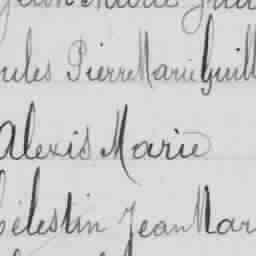 ules Pierre Marie Guill
Alexis Marie
Célestin Jean Mar